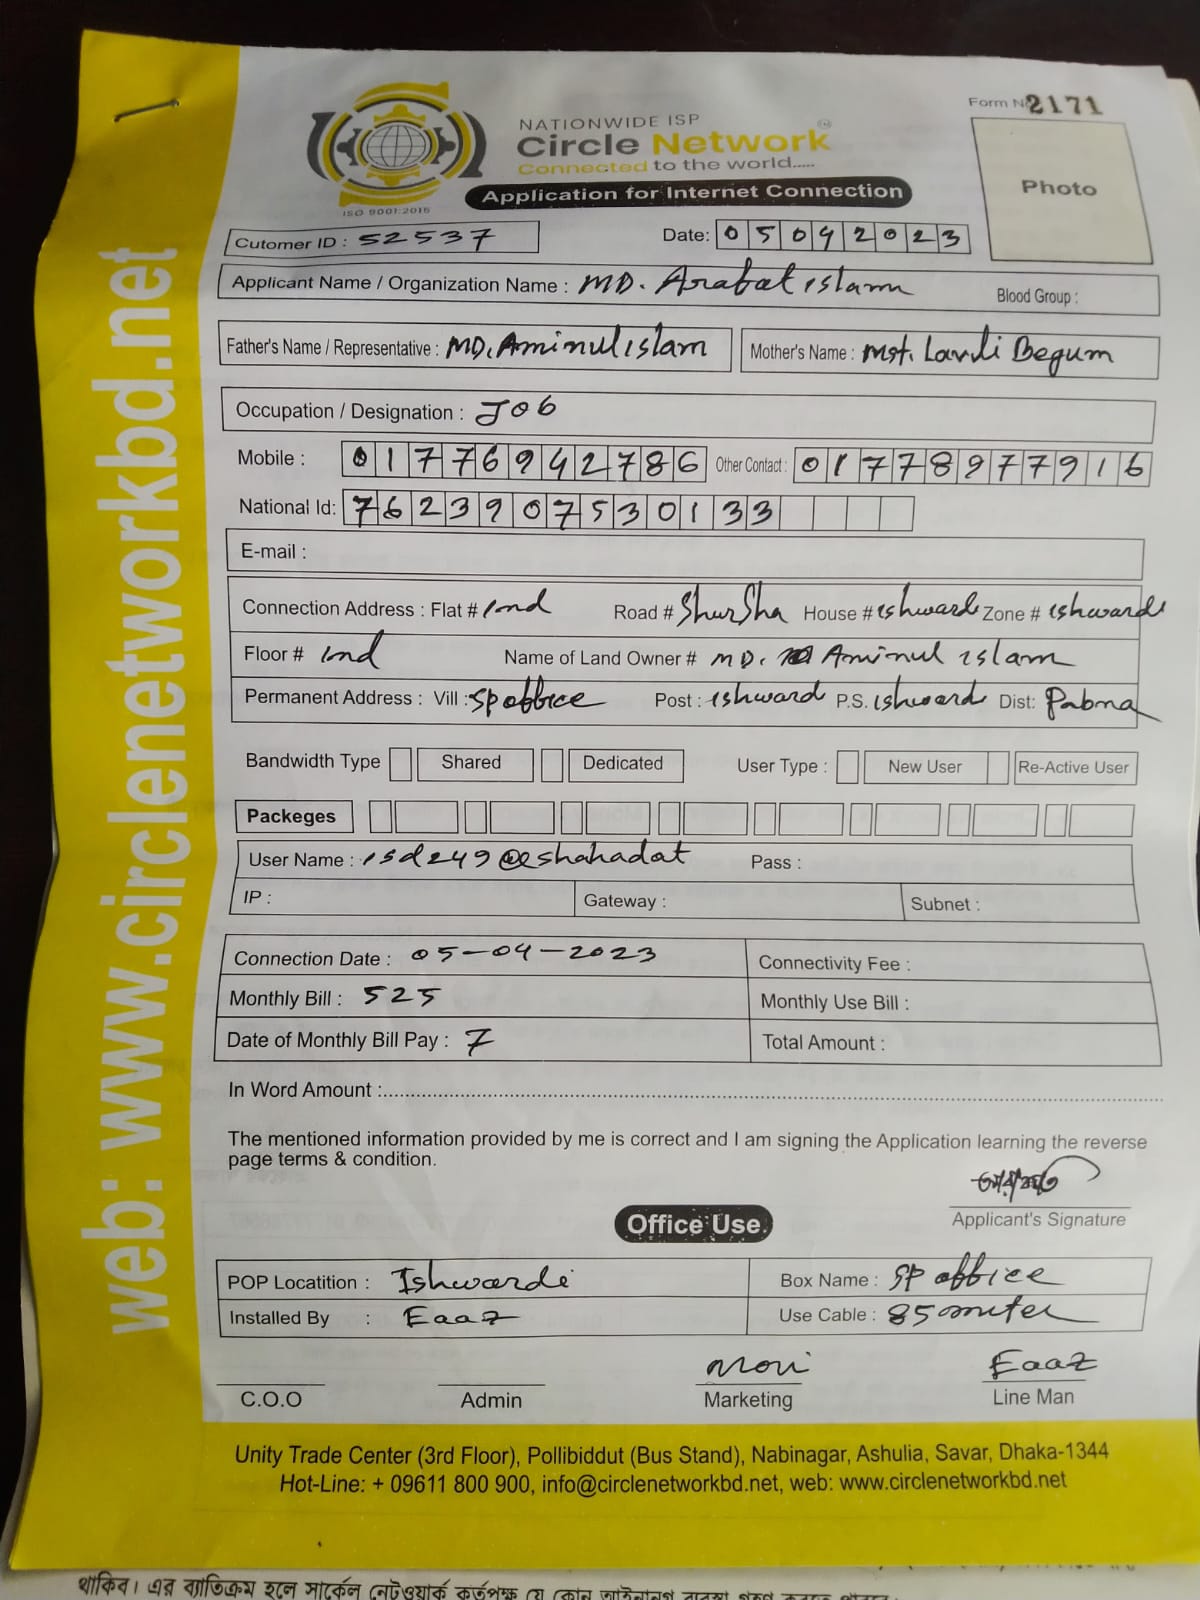 Form No 2171
NATIONWIDE ISP
Circle Network
Connected to the world.....
ISO 9001:2015
Application for Internet Connection
Photo
Cutomer ID : 52537 Date: 05042023
Applicant Name / Organization Name : MD. Arafat islam Blood Group :
Father's Name / Representative : MD. Aminul islam Mother's Name : Mst. Lavli Begum
Occupation / Designation : Job
Mobile : 01776942786 Other Contact : 01778977916
National Id: 7623907530133
E-mail :
Connection Address : Flat # 1nd Road # ShurSha House # ishwardi Zone # ishwardi
Floor # 1nd Name of Land Owner # MD. Aminul islam
Permanent Address : Vill : SP office Post : ishwardi P.S. ishwardi Dist: Pabna
Bandwidth Type Shared Dedicated User Type : New User Re-Active User
Packeges
User Name : isd249@eshahadat Pass :
IP : Gateway : Subnet :
Connection Date : 05-04-2023 Connectivity Fee :
Monthly Bill : 525 Monthly Use Bill :
Date of Monthly Bill Pay : 7 Total Amount :
In Word Amount :
The mentioned information provided by me is correct and I am signing the Application learning the reverse
page terms & condition.
আরাফাত
Applicant's Signature
Office Use
POP Locatition : Ishwardi Box Name : SP office
Installed By : Eaaz Use Cable : 85 miter
Moni Eaaz
C.O.O Admin Marketing Line Man
Unity Trade Center (3rd Floor), Pollibiddut (Bus Stand), Nabinagar, Ashulia, Savar, Dhaka-1344
Hot-Line: + 09611 800 900, info@circlenetworkbd.net, web: www.circlenetworkbd.net
web: www.circlenetworkbd.net
থাকিব। এর ব্যতিক্রম হলে সার্কেল নেটওয়ার্ক কর্তৃপক্ষ যে কোন আইনানুগ ব্যবস্থা গ্রহণ করতে